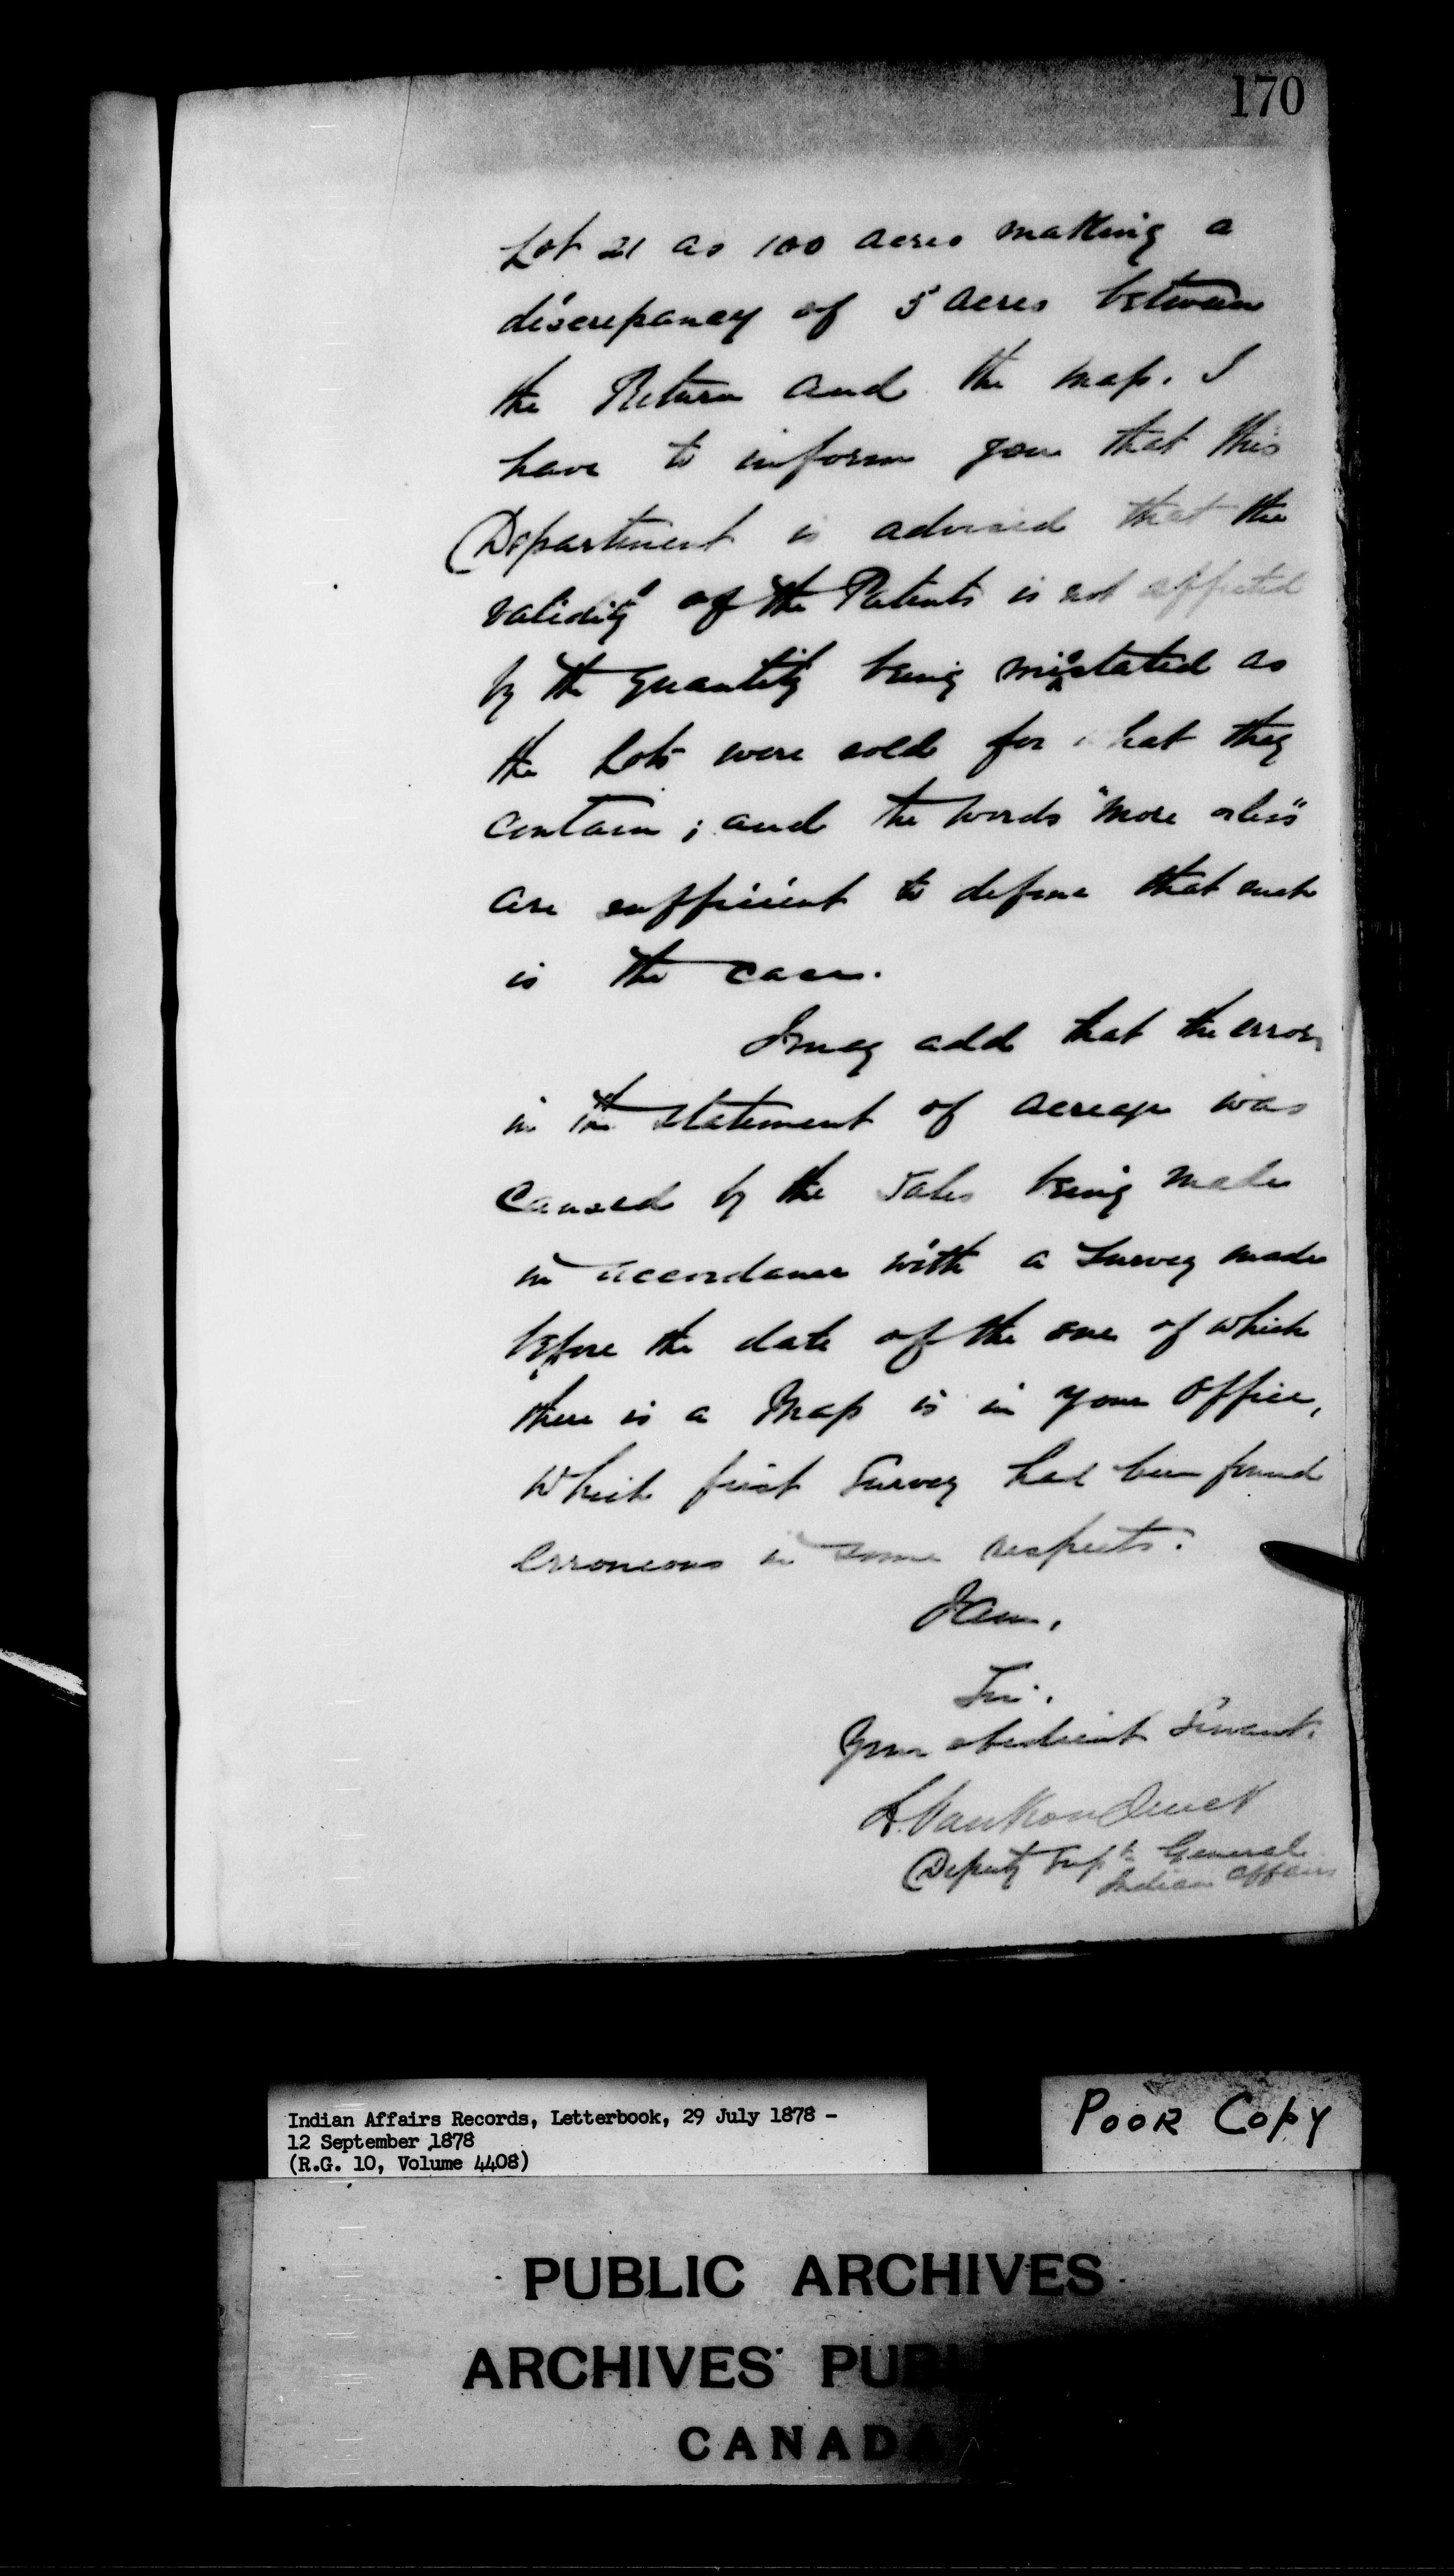 170
Lot 21 as 100 acres making a
discrepancy of 5 acres between
the Return and the map. I
have to inform you that this
Department is advised that the
validity of the Patents is not affected
by the quantity being misstated as
the Lots were sold for what they
contain; and the words "more or less"
are sufficient to define that such
is the case.
I may add that the error
in the statement of acreage was
caused by the Sales being made
in accordance with a Survey made
before the date of the one of which
there is a Map is in your Office,
which first Survey had been found
erroneous in some respects.
I am,
Sir.
Your obedient Servant.
L. VanKoughnet
Deputy Supt. General
Indian Affairs
Indian Affairs Records, Letterbook, 29 July 1878 -
12 September 1878
(R.G. 10, Volume 4408)
POOR COPY
PUBLIC ARCHIVES
ARCHIVES PUB
CANADA